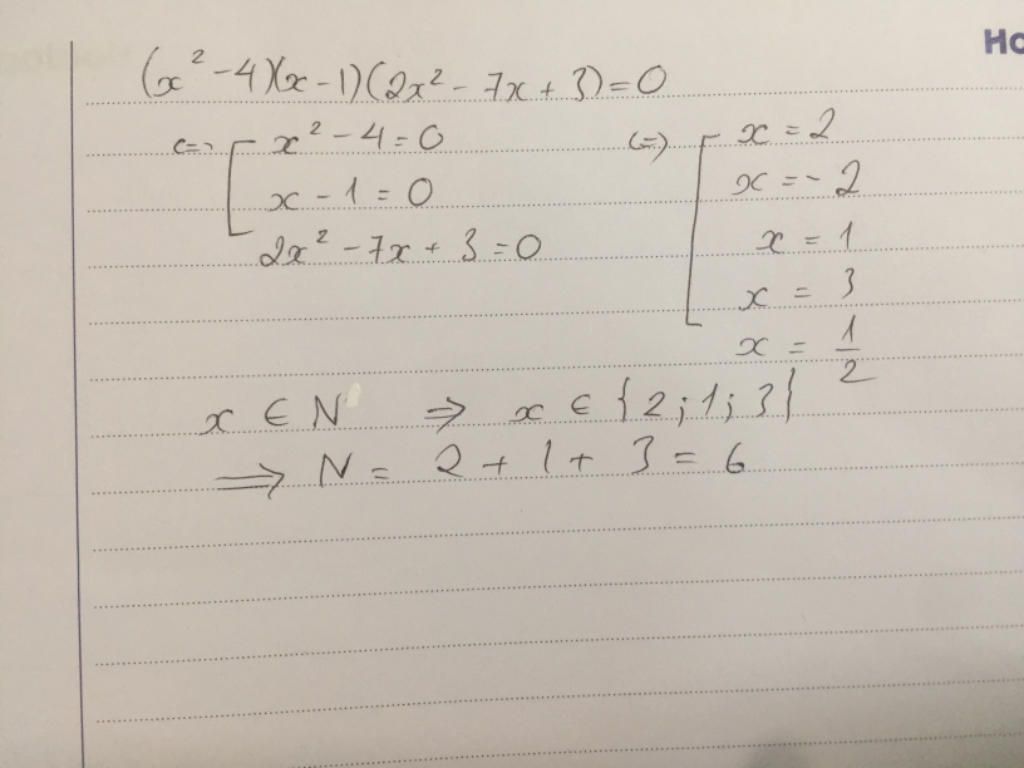 Ho
(x² - 4)(x - 1)(2x² - 7x + 3) = 0
<=> [ x² - 4 = 0 (=) [ x = 2
x - 1 = 0 x = - 2
2x² - 7x + 3 = 0 x = 1
x = 3
x = 1/2
x ∈ N => x ∈ {2;1;3}
=> N = 2 + 1 + 3 = 6